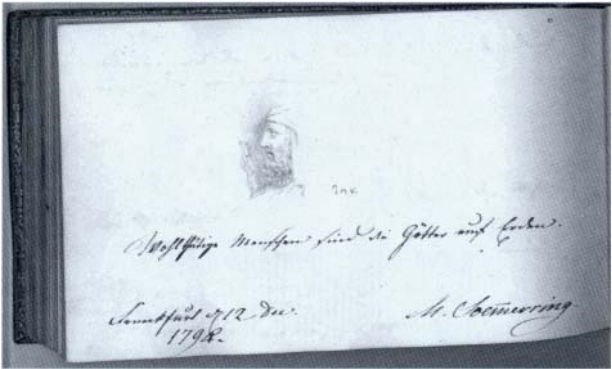 Wohlthätige Menschen sind die Götter auf Erden.
Frankfurt 12 Dec.
1798.
M. Soem̄erring.